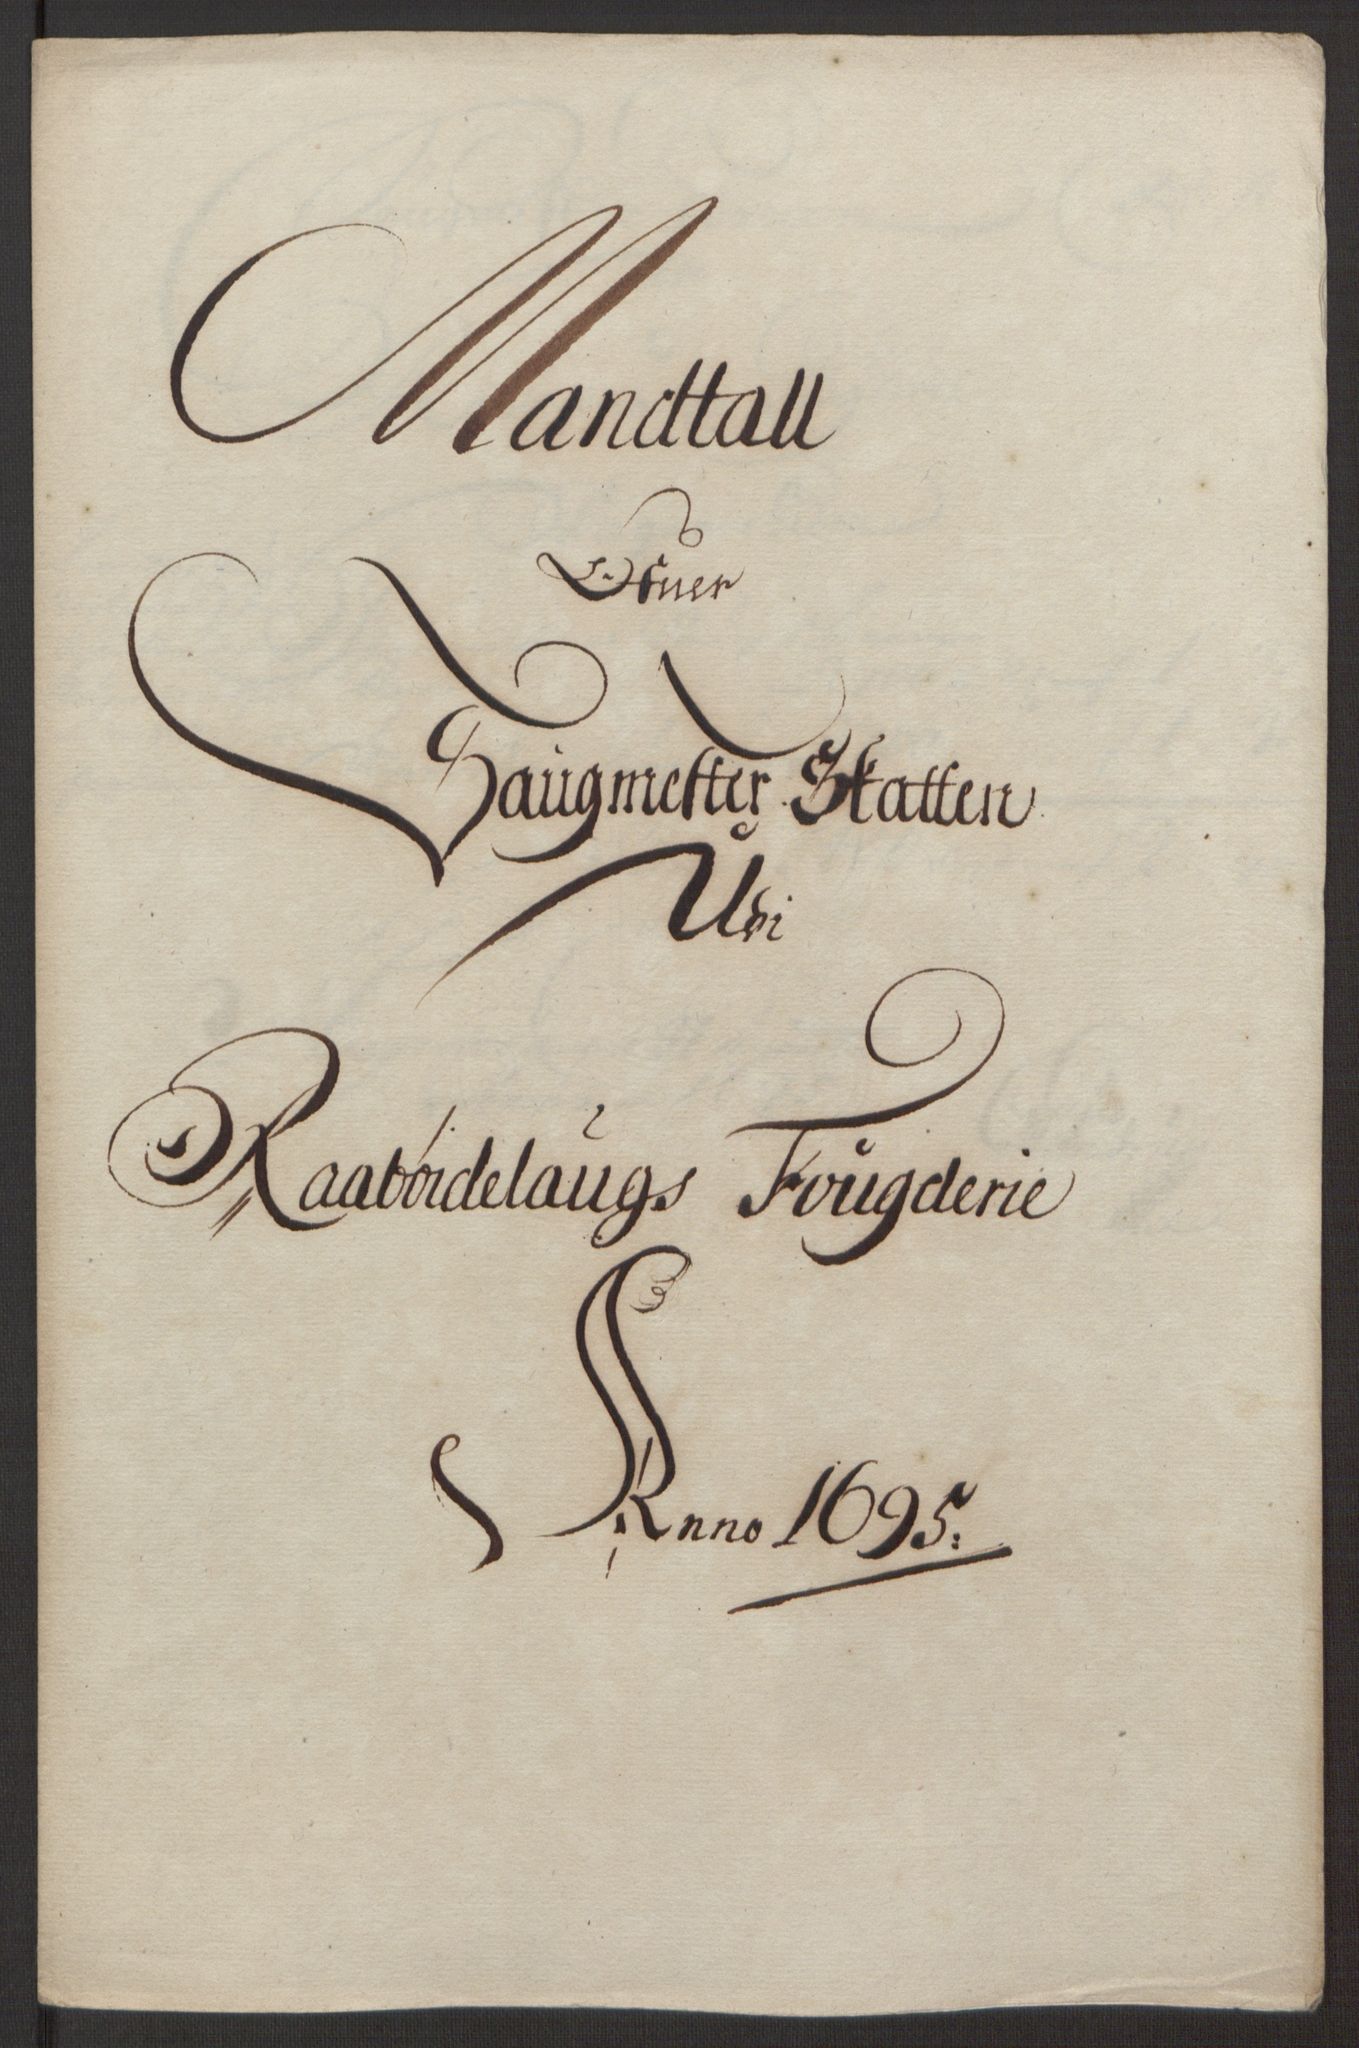 Mandtall
Ofuer
Saugmester Skatten
Udi
Raabøidelaugs Fougderie
Anno 1695.